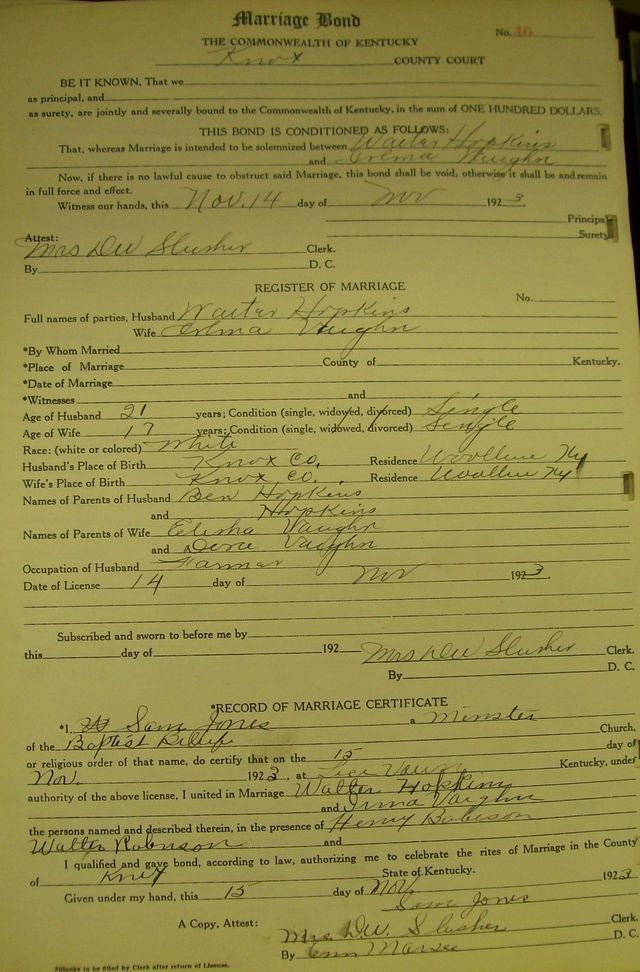 Marriage Bond
No. 16
THE COMMONWEALTH OF KENTUCKY
Knox COUNTY COURT
BE IT KNOWN, That we
as principal, and
as surety, are jointly and severally bound to the Commonwealth of Kentucky, in the sum of ONE HUNDRED DOLLARS.
THIS BOND IS CONDITIONED AS FOLLOWS:
That, whereas Marriage is intended to be solemnized between Walter Hopkins
and Vaughn
Now, if there is no lawful cause to obstruct said Marriage, this bond shall be void, otherwise it shall be and remain
in full force and effect.
Witness our hands, this Nov. 14 day of Nov 1923
Principal
Surety
Attest:
Mrs DW Slusher Clerk.
By D. C.
REGISTER OF MARRIAGE
No.
Full names of parties, Husband Walter Hopkins
Wife Vaughn
*By Whom Married
*Place of Marriage County of Kentucky.
*Date of Marriage
*Witnesses and
Age of Husband 21 years; Condition (single, widowed, divorced) Single
Age of Wife 17 years; Condition (single, widowed, divorced) Single
Race: (white or colored) White
Husband's Place of Birth Knox Co. Residence Woolline Ky
Wife's Place of Birth Knox Co. Residence Woolline Ky
Names of Parents of Husband Ben Hopkins
and Hopkins
Names of Parents of Wife Elisha Vaughn
and Vaughn
Occupation of Husband Farmar
Date of License 14 day of Nov 1923.
Subscribed and sworn to before me by
this day of 192
Mrs DW Slusher Clerk.
By D. C.
*RECORD OF MARRIAGE CERTIFICATE
*I, Sam Jones a Minster
of the Baptist Church,
or religious order of that name, do certify that on the 15 day of
Nov. 1923, at Kentucky, under
authority of the above license, I united in Marriage Walter Hopkins
and Irma Vaughn
the persons named and described therein, in the presence of Henry
Walter Robinson and
I qualified and gave bond, according to law, authorizing me to celebrate the rites of Marriage in the County
of Knox State of Kentucky.
Given under my hand, this 15 day of Nov. 1923
Sam Jones
A Copy, Attest: Mrs. D.W. Slusher Clerk.
By Marsee D. C.
*Blanks to be filled by Clerk after return of License.